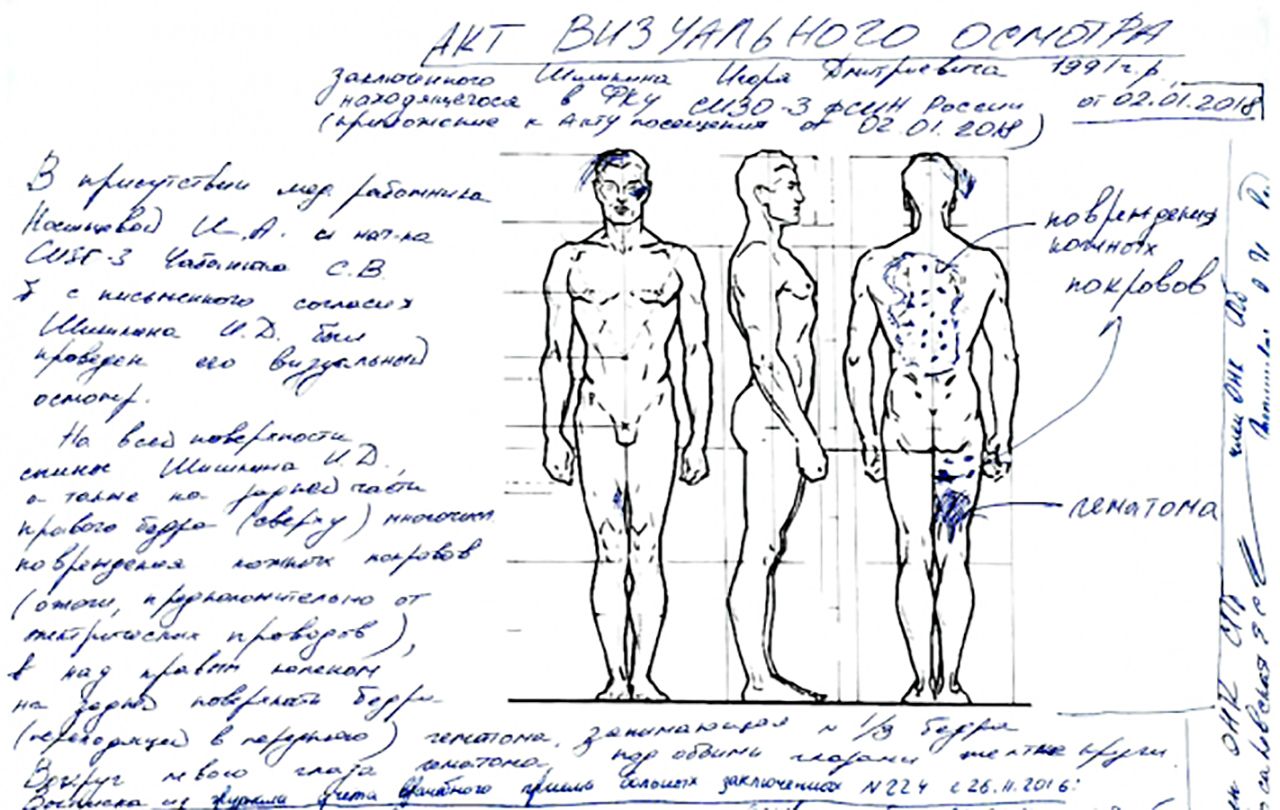 АКТ ВИЗУАЛЬНОГО ОСМОТРА
заключенного Шишкина Игоря Дмитриевича 1991 г.р.,
находящегося в ФКУ СИЗО-3 ФСИН России
от 02.01.2018
(приложение к Акту посещения от 02.01.2018)
В присутствии мед. работника
И. А. и нач-ка
СИЗО-3 С. В.
с письменного согласия
Шишкина И.Д. был
проведен его визуальный
осмотр.
На всей поверхности
спины Шишкина И.Д.,
а также на задней части
правого бедра (сверху) многочисл.
повреждения кожных покровов
(ожоги, предположительно от
электрических проводов),
над правым коленом
на задней поверхности бедра
(переходящей в ) гематома, занимающая ~ 1/3 бедра
Вокруг левого глаза гематома, под обоими глазами желтые круги.
Выписка из журнала учета врачебного приема больных заключенных N 224 с 26.11.2016:
повреждения
кожных
покровов
гематома
член ОНК
ОНК СПб